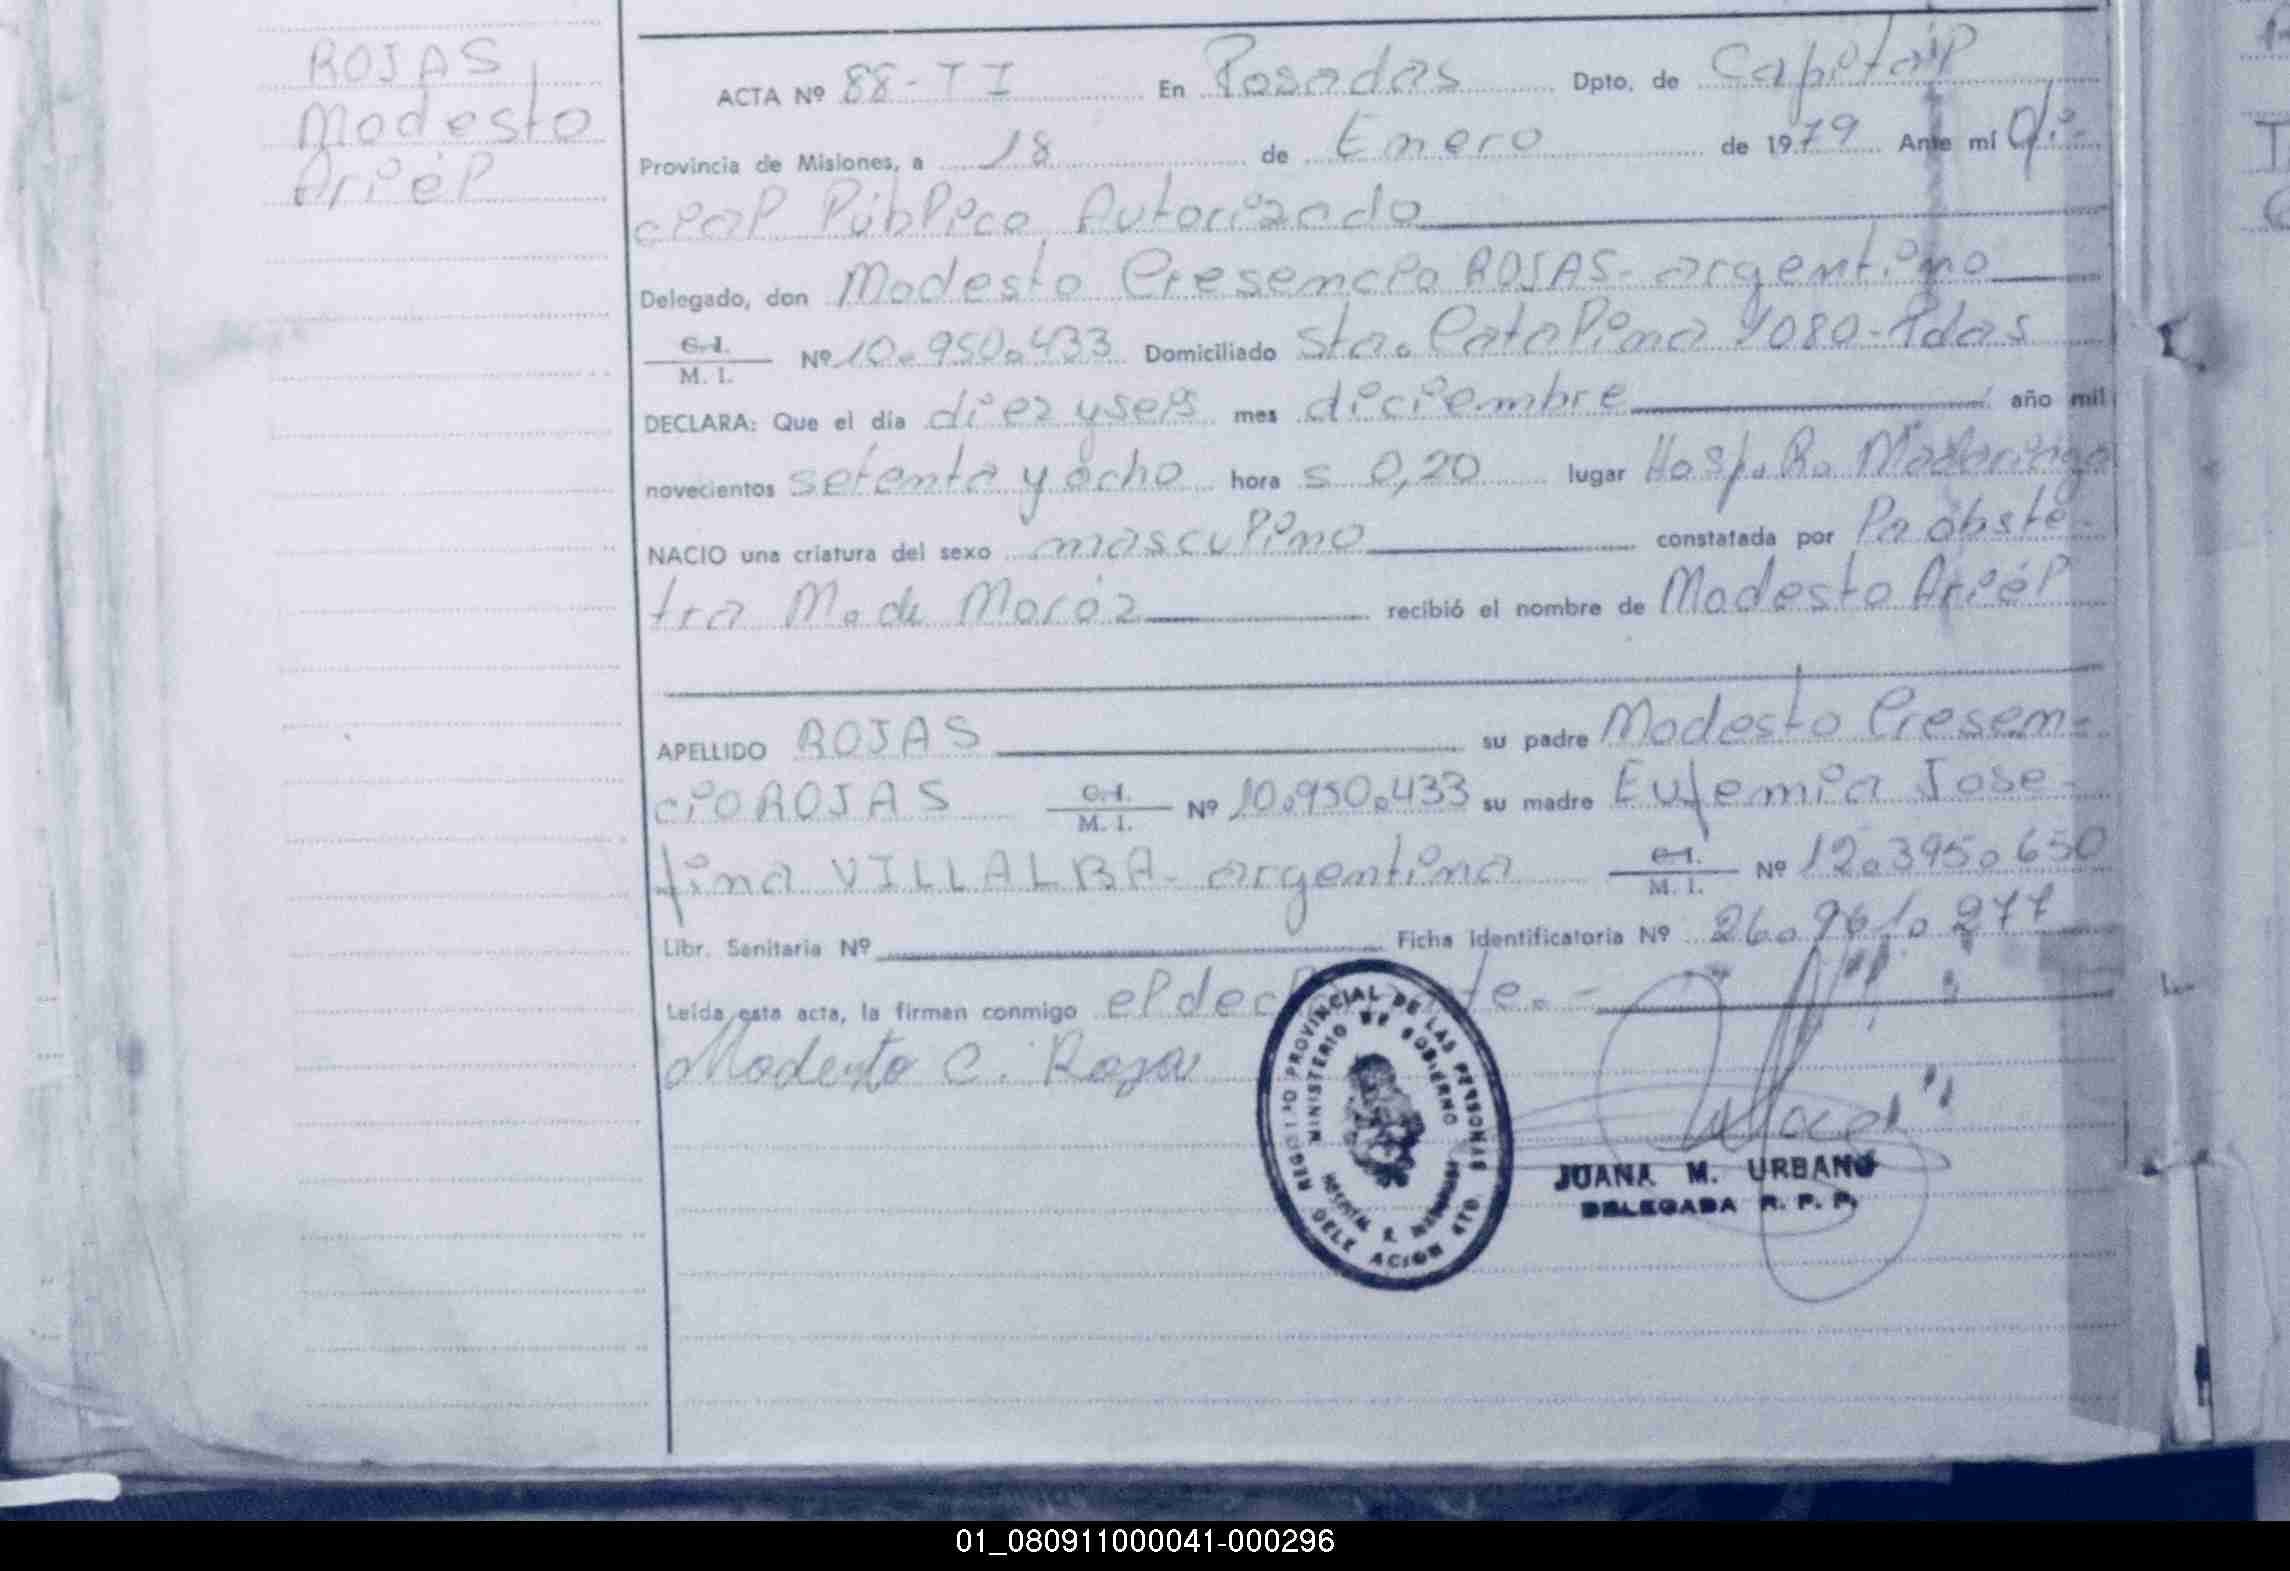 ROJAS
Modesto
Ariél
ACTA Nº 88-TI En Posadas Dpto. de Capital
Provincia de Misiones, a 18 de Enero de 1979 Ante mí Ofi-
cial Público Autorizado
Delegado, don Modesto Cresencio ROJAS- argentino
C.I. M. I. Nº 10.950.433 Domiciliado Sta. Catalina 4080-Pdas
DECLARA: Que el día diez y seis mes diciembre año mil
novecientos setenta y ocho hora s 0,20 lugar Hosp. R. Madariaga
NACIO una criatura del sexo masculino constatada por la obste-
tra M. de Moróz recibió el nombre de Modesto Ariél
APELLIDO ROJAS su padre Modesto Cresen-
cio ROJAS C.I. M. I. Nº 10.950.433 su madre Eufemia Jose-
fina VILLALBA- argentina C.I. M. I. Nº 12.395.650
Libr. Sanitaria Nº Ficha identificatoria Nº 26.961.277
Leída esta acta, la firman conmigo el dec te.-
Modesto C. Rojas
REGISTRO PROVINCIAL DE LAS PERSONAS
MINISTERIO DE GOBIERNO
HOSPITAL R. MADARIAGA
DELEGACION 4TO.
JUANA M. URBANO
DELEGADA R. P. P.
01_080911000041-000296